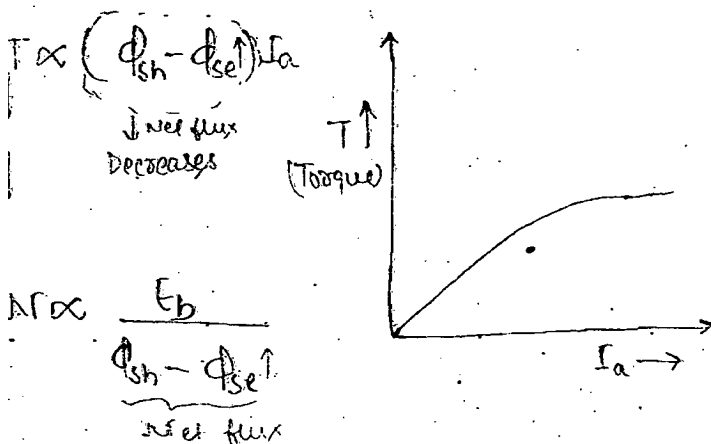 T ∝ (ϕsh − ϕse↑) Ia
↓ Net flux
Decreases
T↑
(Torque)
Ia →
N ∝ Eb
ϕsh − ϕse↑
Net flux